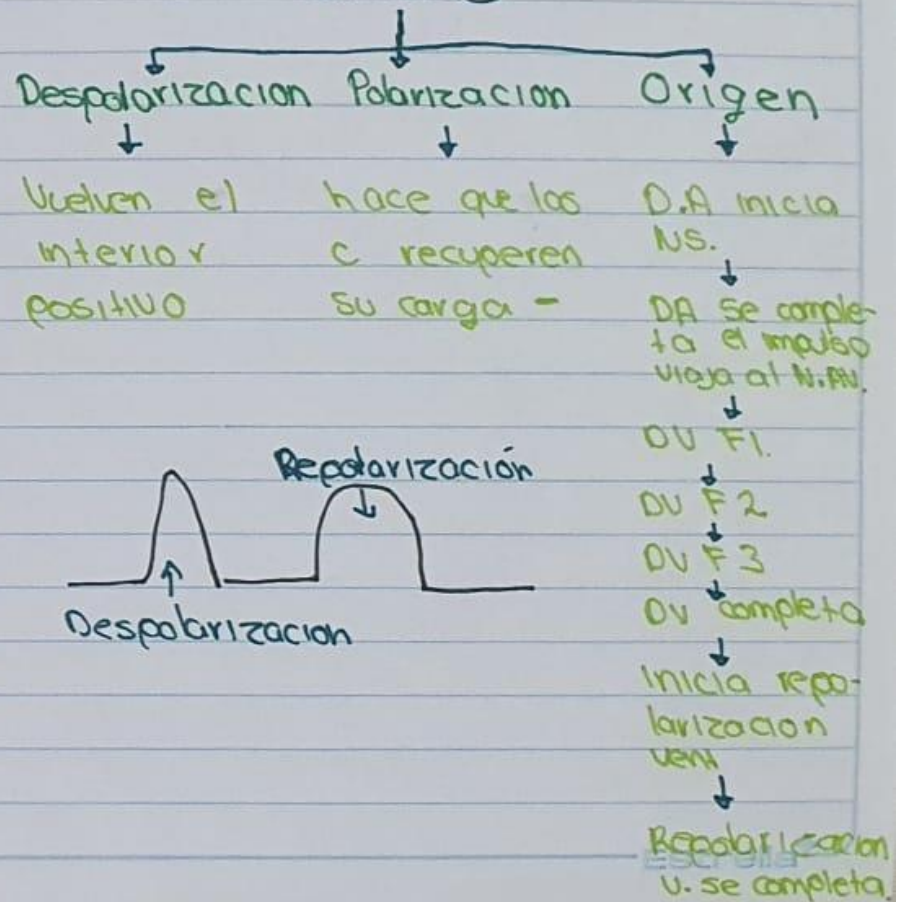 Despolarizacion
Polarizacion
Origen
Vuelven el
interior
positivo
hace que las
c recuperen
su carga -
D.A inicia
NS.
DA se comple-
ta el impulso
viaja al N.AV.
DV F1.
DV F2
DV F3
DV completa
Inicia repo-
larizacion
vent
Repolarizacion
v. se completa.
Repolarización
Despolarizacion